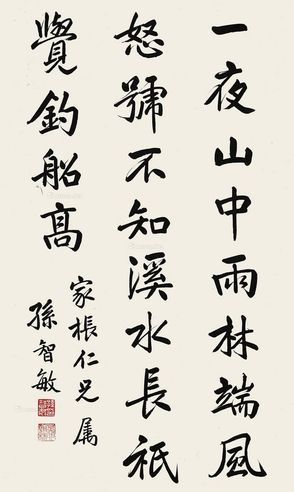 一夜山中雨林端風
怒號不知溪水長祇
覺釣船高
家棖仁兄属
孫智敏